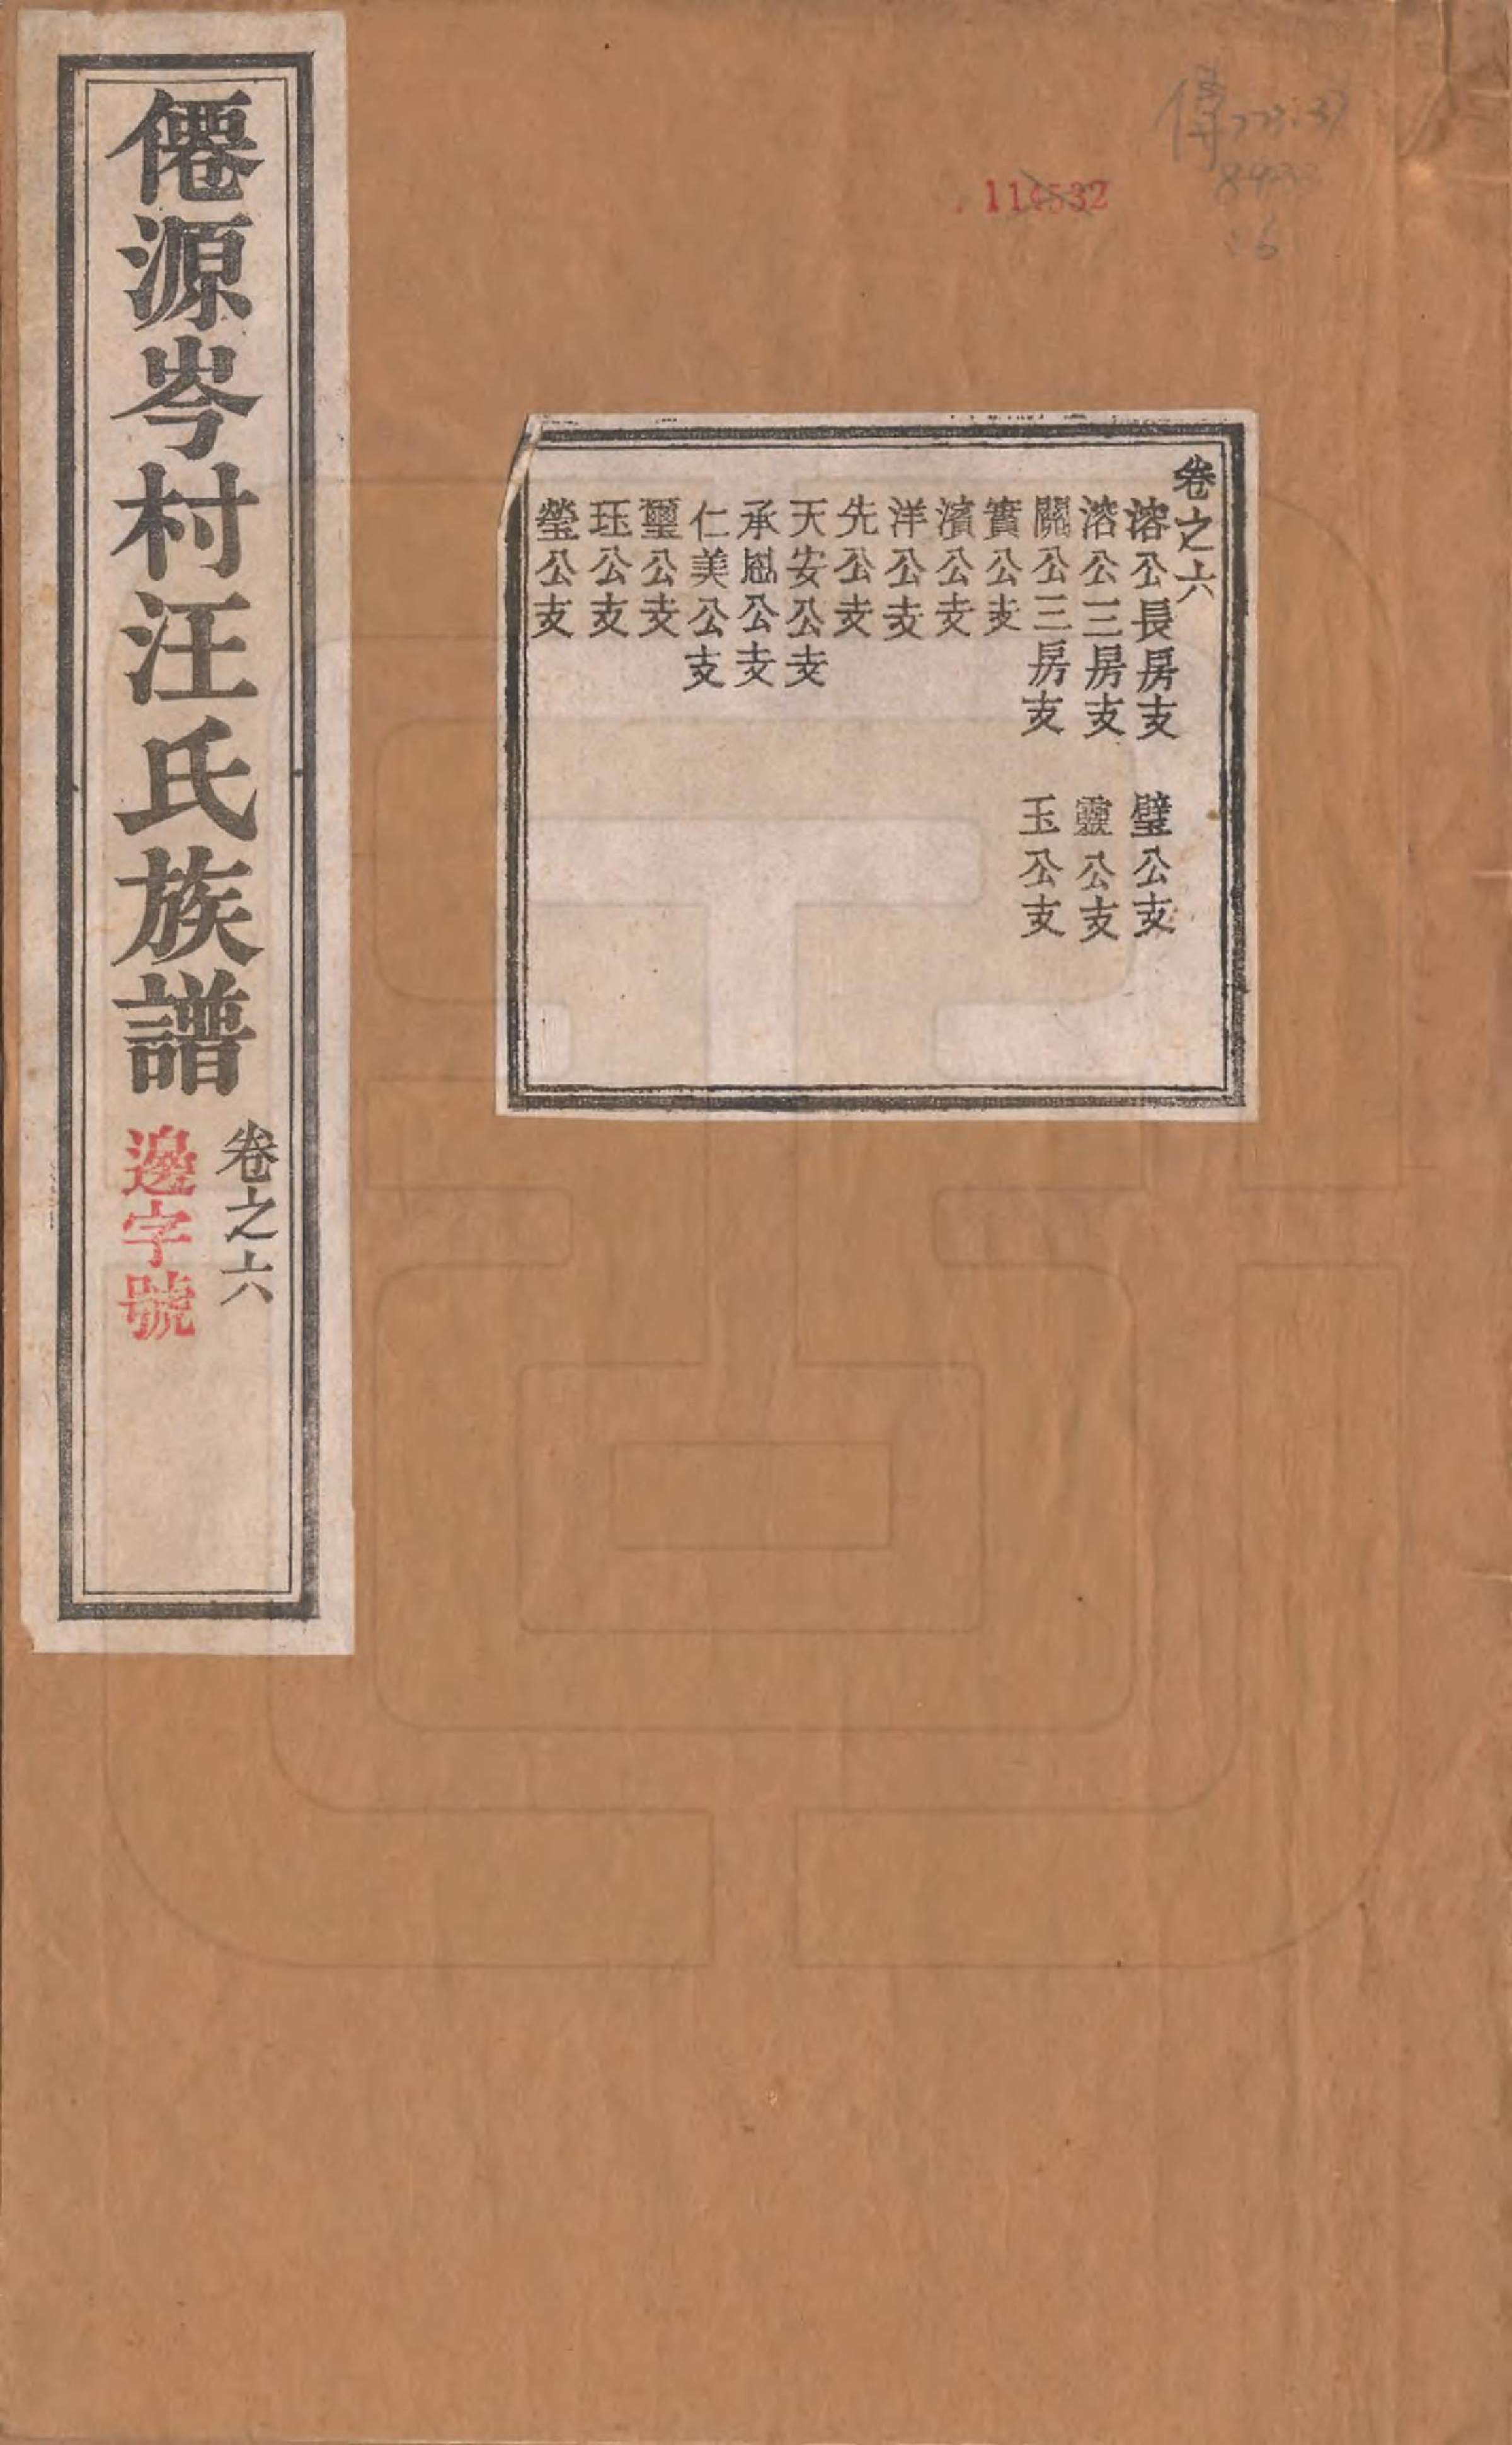 僊源岑村汪氏族譜
卷之六
邊字號
卷之六
溶公長房支 璧公支
溶公三房支 靈公支
關公三房支 玉公支
實公支
濱公支
洋公支
先公支
天安公支
承恩公支
仁美公支
璽公支
珏公支
瑩公支
114532